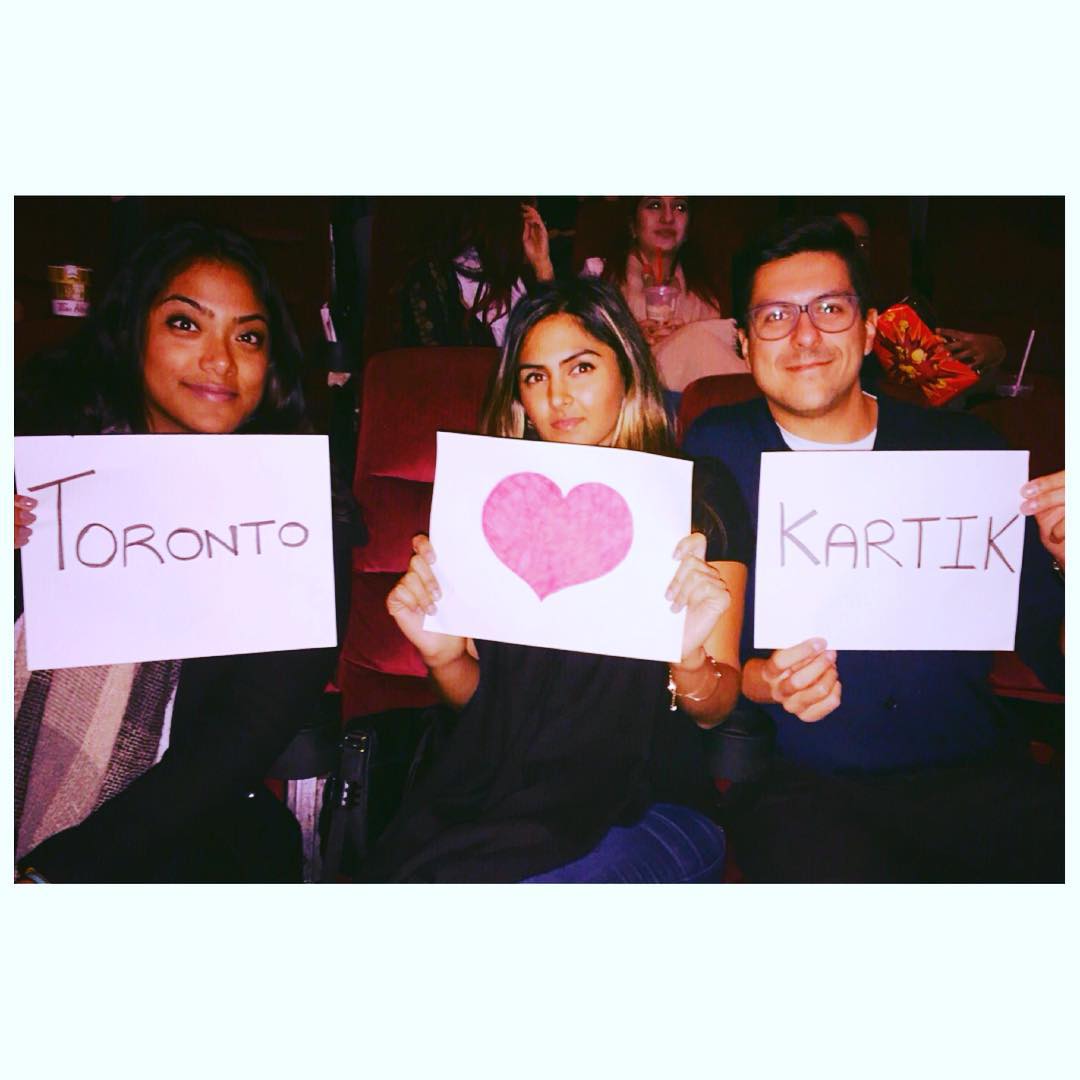 TORONTO
KARTIK